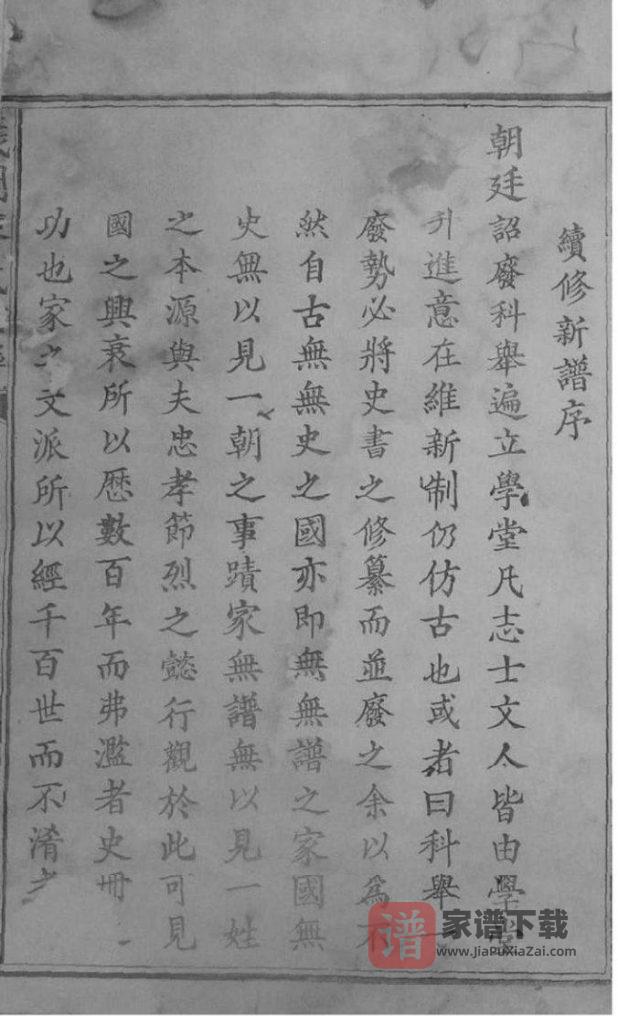 續修新譜序
朝廷詔廢科舉遍立學堂凡志士文人皆由學堂
升進意在維新制仍仿古也或者曰科舉一
廢勢必將史書之修纂而並廢之余以為不
然自古無無史之國亦即無無譜之家國無
史無以見一朝之事蹟家無譜無以見一姓
之本源與夫忠孝節烈之懿行觀於此可見
國之興衰所以歷數百年而弗濫者史冊
功也家之文派所以經千百世而不淆
谱
家谱下载
www.JiaPuXiaZai.com